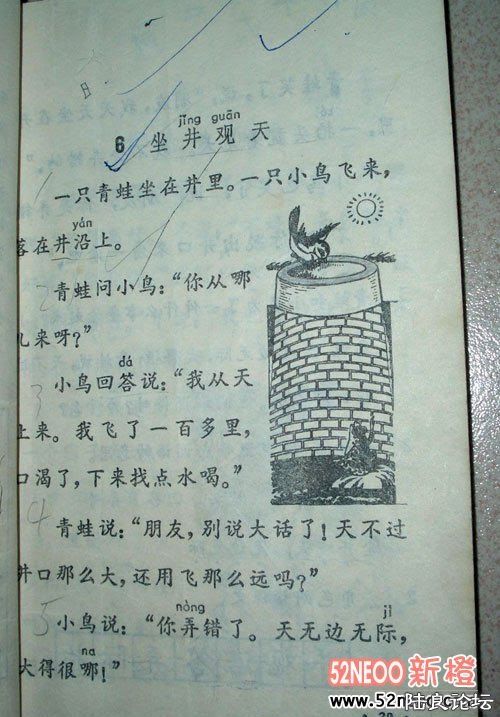 月
jǐng guān
6 坐井观天
一只青蛙坐在井里。一只小鸟飞来,
yán
落在井沿上。
1
2
青蛙问小鸟:“你从哪
儿来呀?”
dá
3
小鸟回答说:“我从天
上来。我飞了一百多里,
口渴了,下来找点水喝。”
4
青蛙说:“朋友,别说大话了!天不过
井口那么大,还用飞那么远吗?”
nòng jì
5
小鸟说:“你弄错了。天无边无际,
na
大得很哪!”
52NEOO 新橙
www.52n
陆良论坛